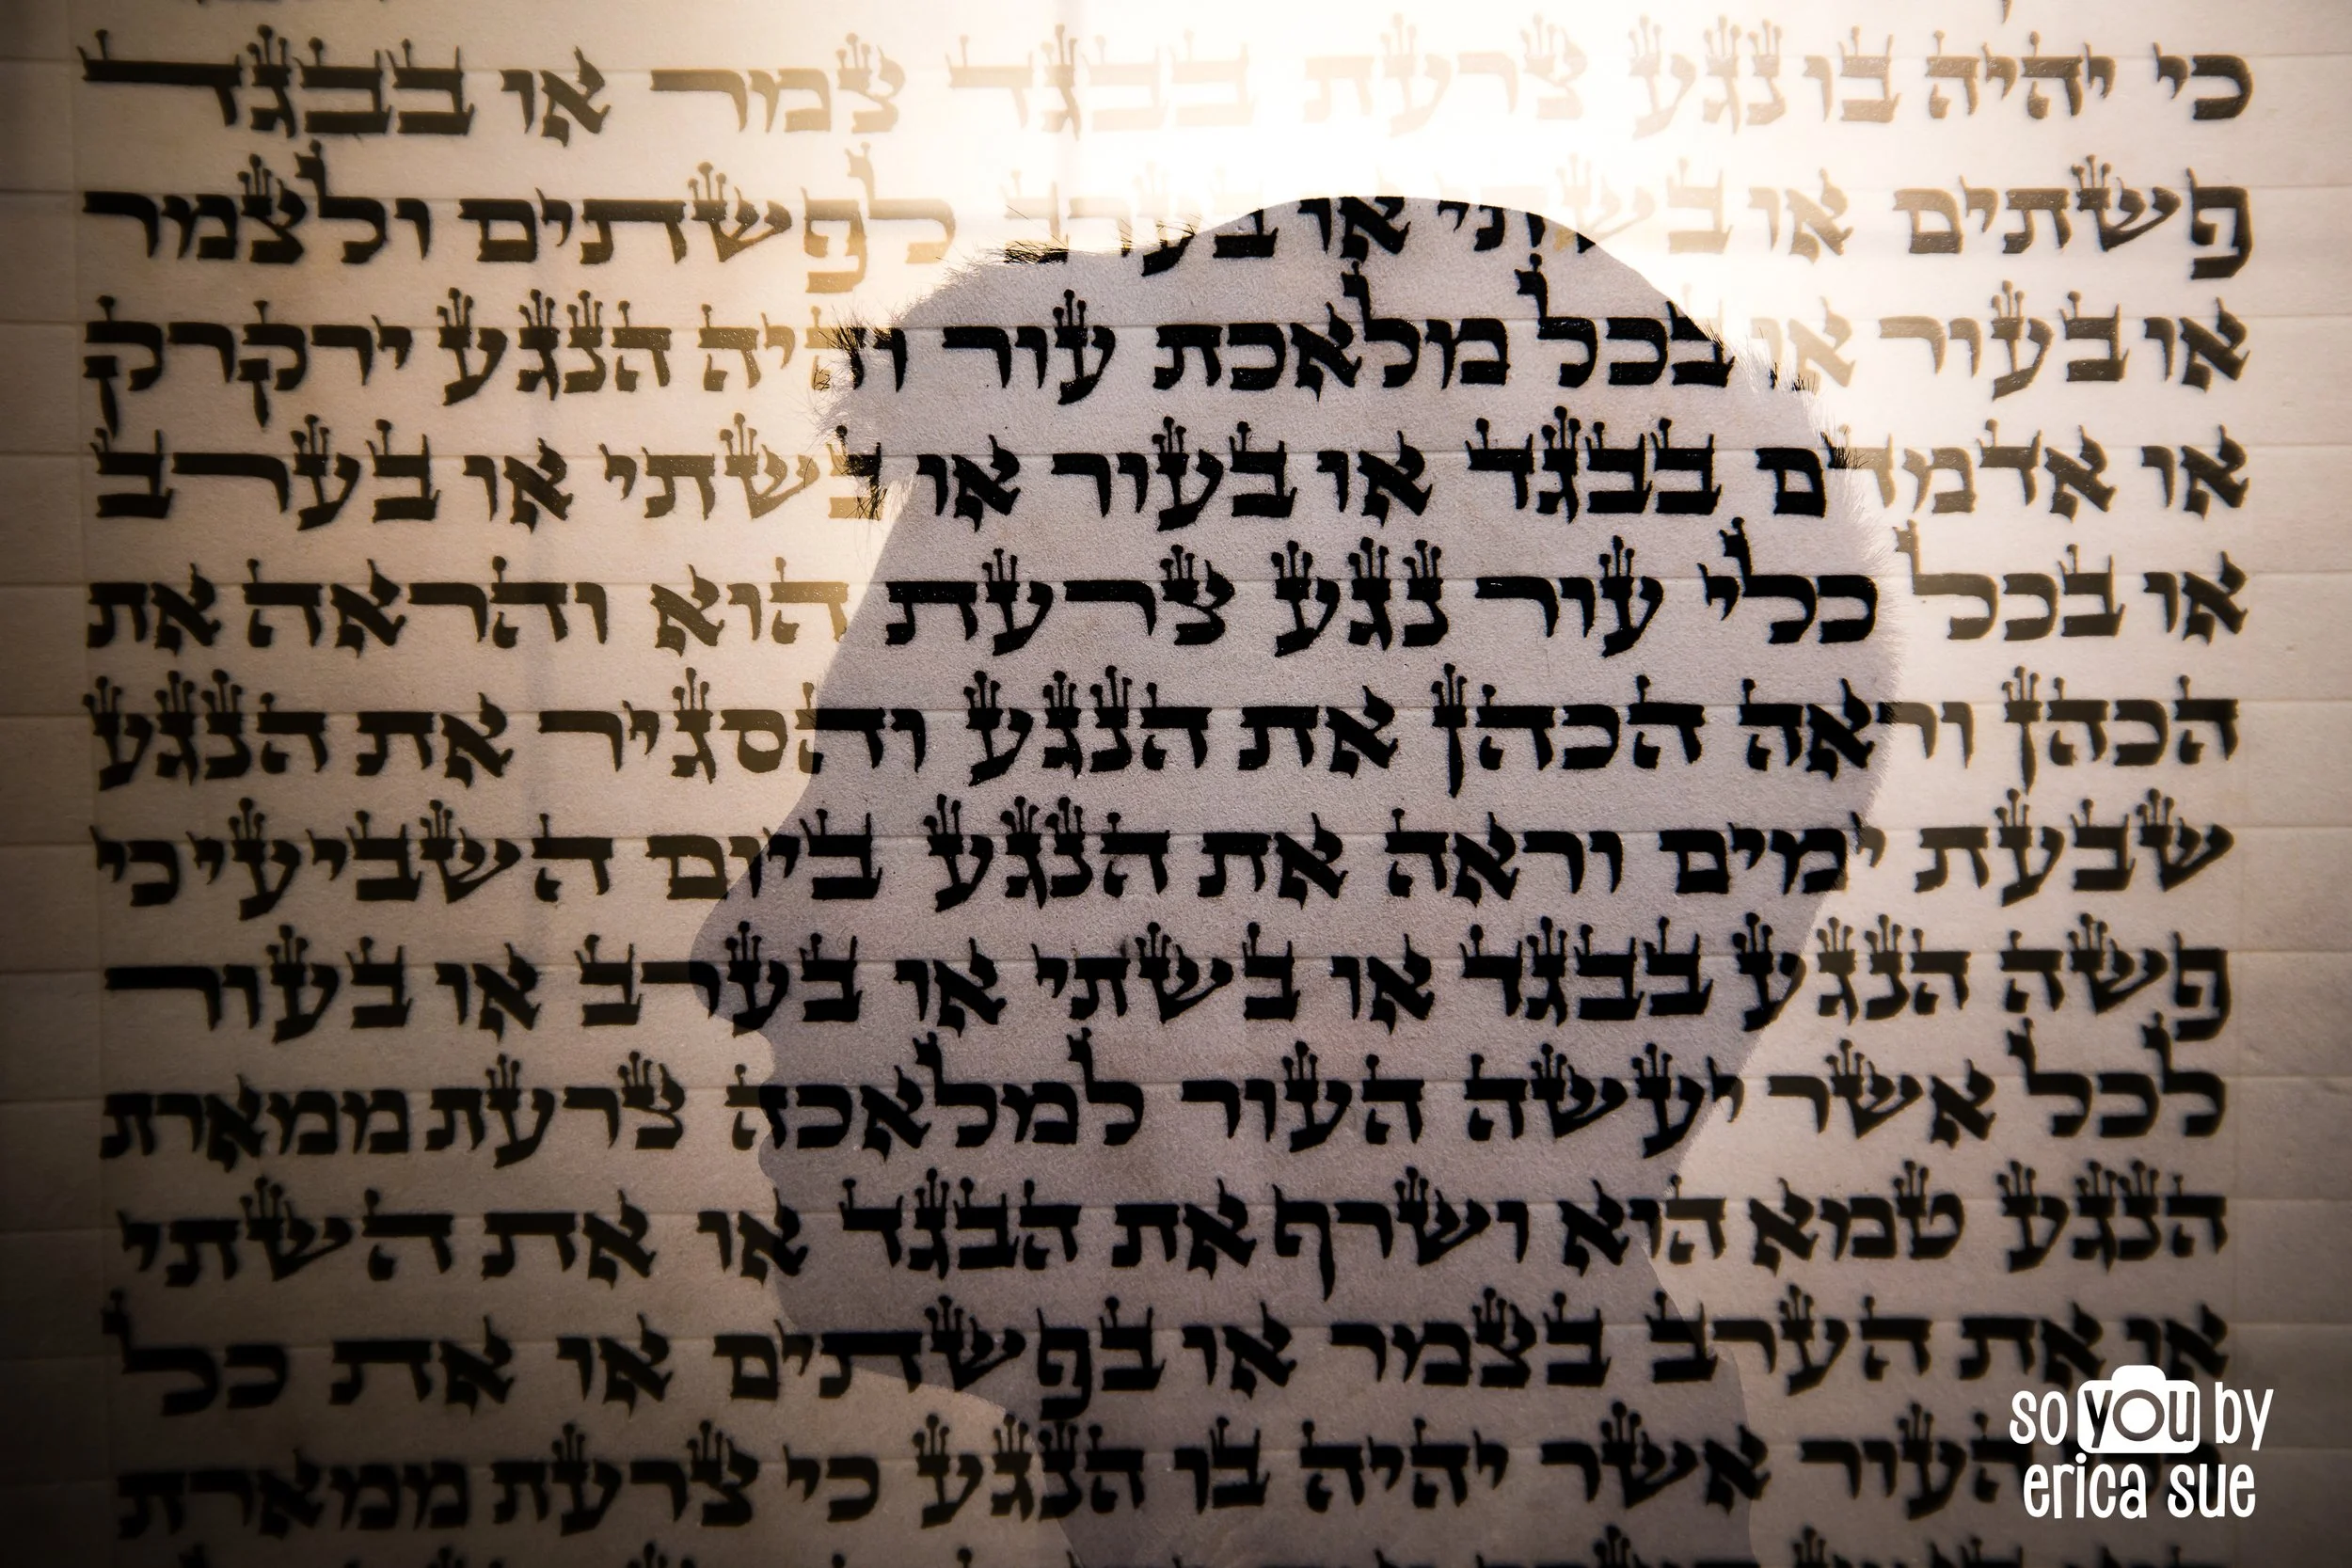 כי יהיה בו נגע צרעת בבגד צמר או בבגד
פשתים או בשתי או בערב לפשתים ולצמר
או בעור או בכל מלאכת עור והיה הנגע ירקרק
או אדמדם בבגד או בעור או בשתי או בערב
או בכל כלי עור נגע צרעת הוא והראה את
הכהן וראה הכהן את הנגע והסגיר את הנגע
שבעת ימים וראה את הנגע ביום השביעי כי
פשה הנגע בבגד או בשתי או בערב או בעור
לכל אשר יעשה העור למלאכה צרעת ממארת
הנגע טמא הוא ושרף את הבגד או את השתי
או את הערב בצמר או בפשתים או את כל
העור אשר יהיה בו הנגע כי צרעת ממארת
so you by
erica sue